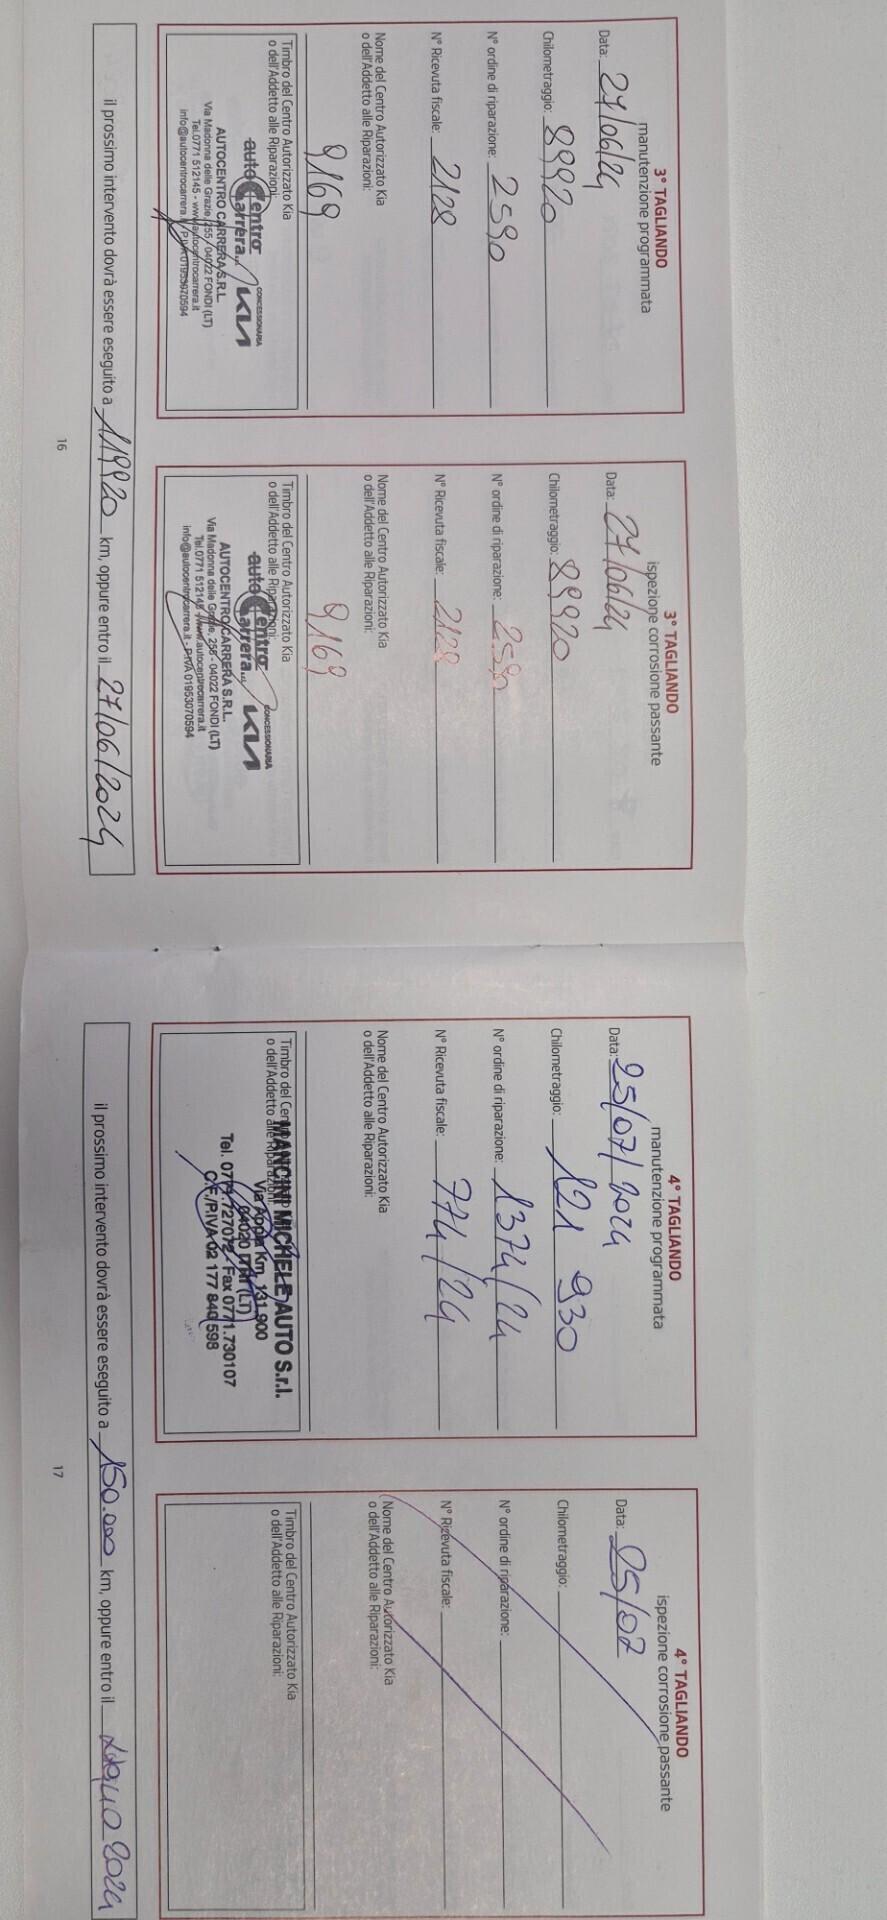 3° TAGLIANDO
manutenzione programmata
Data: 27/06/24
Chilometraggio: 89920
N° ordine di riparazione: 2590
N° Ricevuta fiscale: 2128
Nome del Centro Autorizzato Kia
o dell'Addetto alle Riparazioni:
9169
Timbro del Centro Autorizzato Kia
o dell'Addetto alle Riparazioni:
autoCentro
Carrera
CONCESSIONARIA
KIA
AUTOCENTRO CARRERA S.R.L.
Via Madonna delle Grazie, 255 - 04022 FONDI (LT)
Tel.0771 512145 - www.autocentrocarrera.it
info@autocentrocarrera.it - P.IVA 01953070594
3° TAGLIANDO
ispezione corrosione passante
Data: 27/06/24
Chilometraggio: 89920
N° ordine di riparazione: 2590
N° Ricevuta fiscale: 2128
Nome del Centro Autorizzato Kia
o dell'Addetto alle Riparazioni:
9169
Timbro del Centro Autorizzato Kia
o dell'Addetto alle Riparazioni:
autoCentro
Carrera
CONCESSIONARIA
KIA
AUTOCENTRO CARRERA S.R.L.
Via Madonna delle Grazie, 255 - 04022 FONDI (LT)
Tel.0771 512145 - www.autocentrocarrera.it
info@autocentrocarrera.it - P.IVA 01953070594
il prossimo intervento dovrà essere eseguito a 119920 km, oppure entro il 27/06/2024
16
4° TAGLIANDO
manutenzione programmata
Data: 25/07/2024
Chilometraggio: 121 930
N° ordine di riparazione: 1374/24
N° Ricevuta fiscale: 774/24
Nome del Centro Autorizzato Kia
o dell'Addetto alle Riparazioni:
Timbro del Centro Autorizzato Kia
o dell'Addetto alle Riparazioni:
MANCINI MICHELE AUTO S.r.l.
Via Appia Km. 131,900
04020 ITRI (LT)
Tel. 0771.727072 - Fax 0771.730107
C.F./P.IVA 02 177 840 598
4° TAGLIANDO
ispezione corrosione passante
Data: 25/07
Chilometraggio:
N° ordine di riparazione:
N° Ricevuta fiscale:
Nome del Centro Autorizzato Kia
o dell'Addetto alle Riparazioni:
Timbro del Centro Autorizzato Kia
o dell'Addetto alle Riparazioni:
il prossimo intervento dovrà essere eseguito a 150.000 km, oppure entro il 2024
17